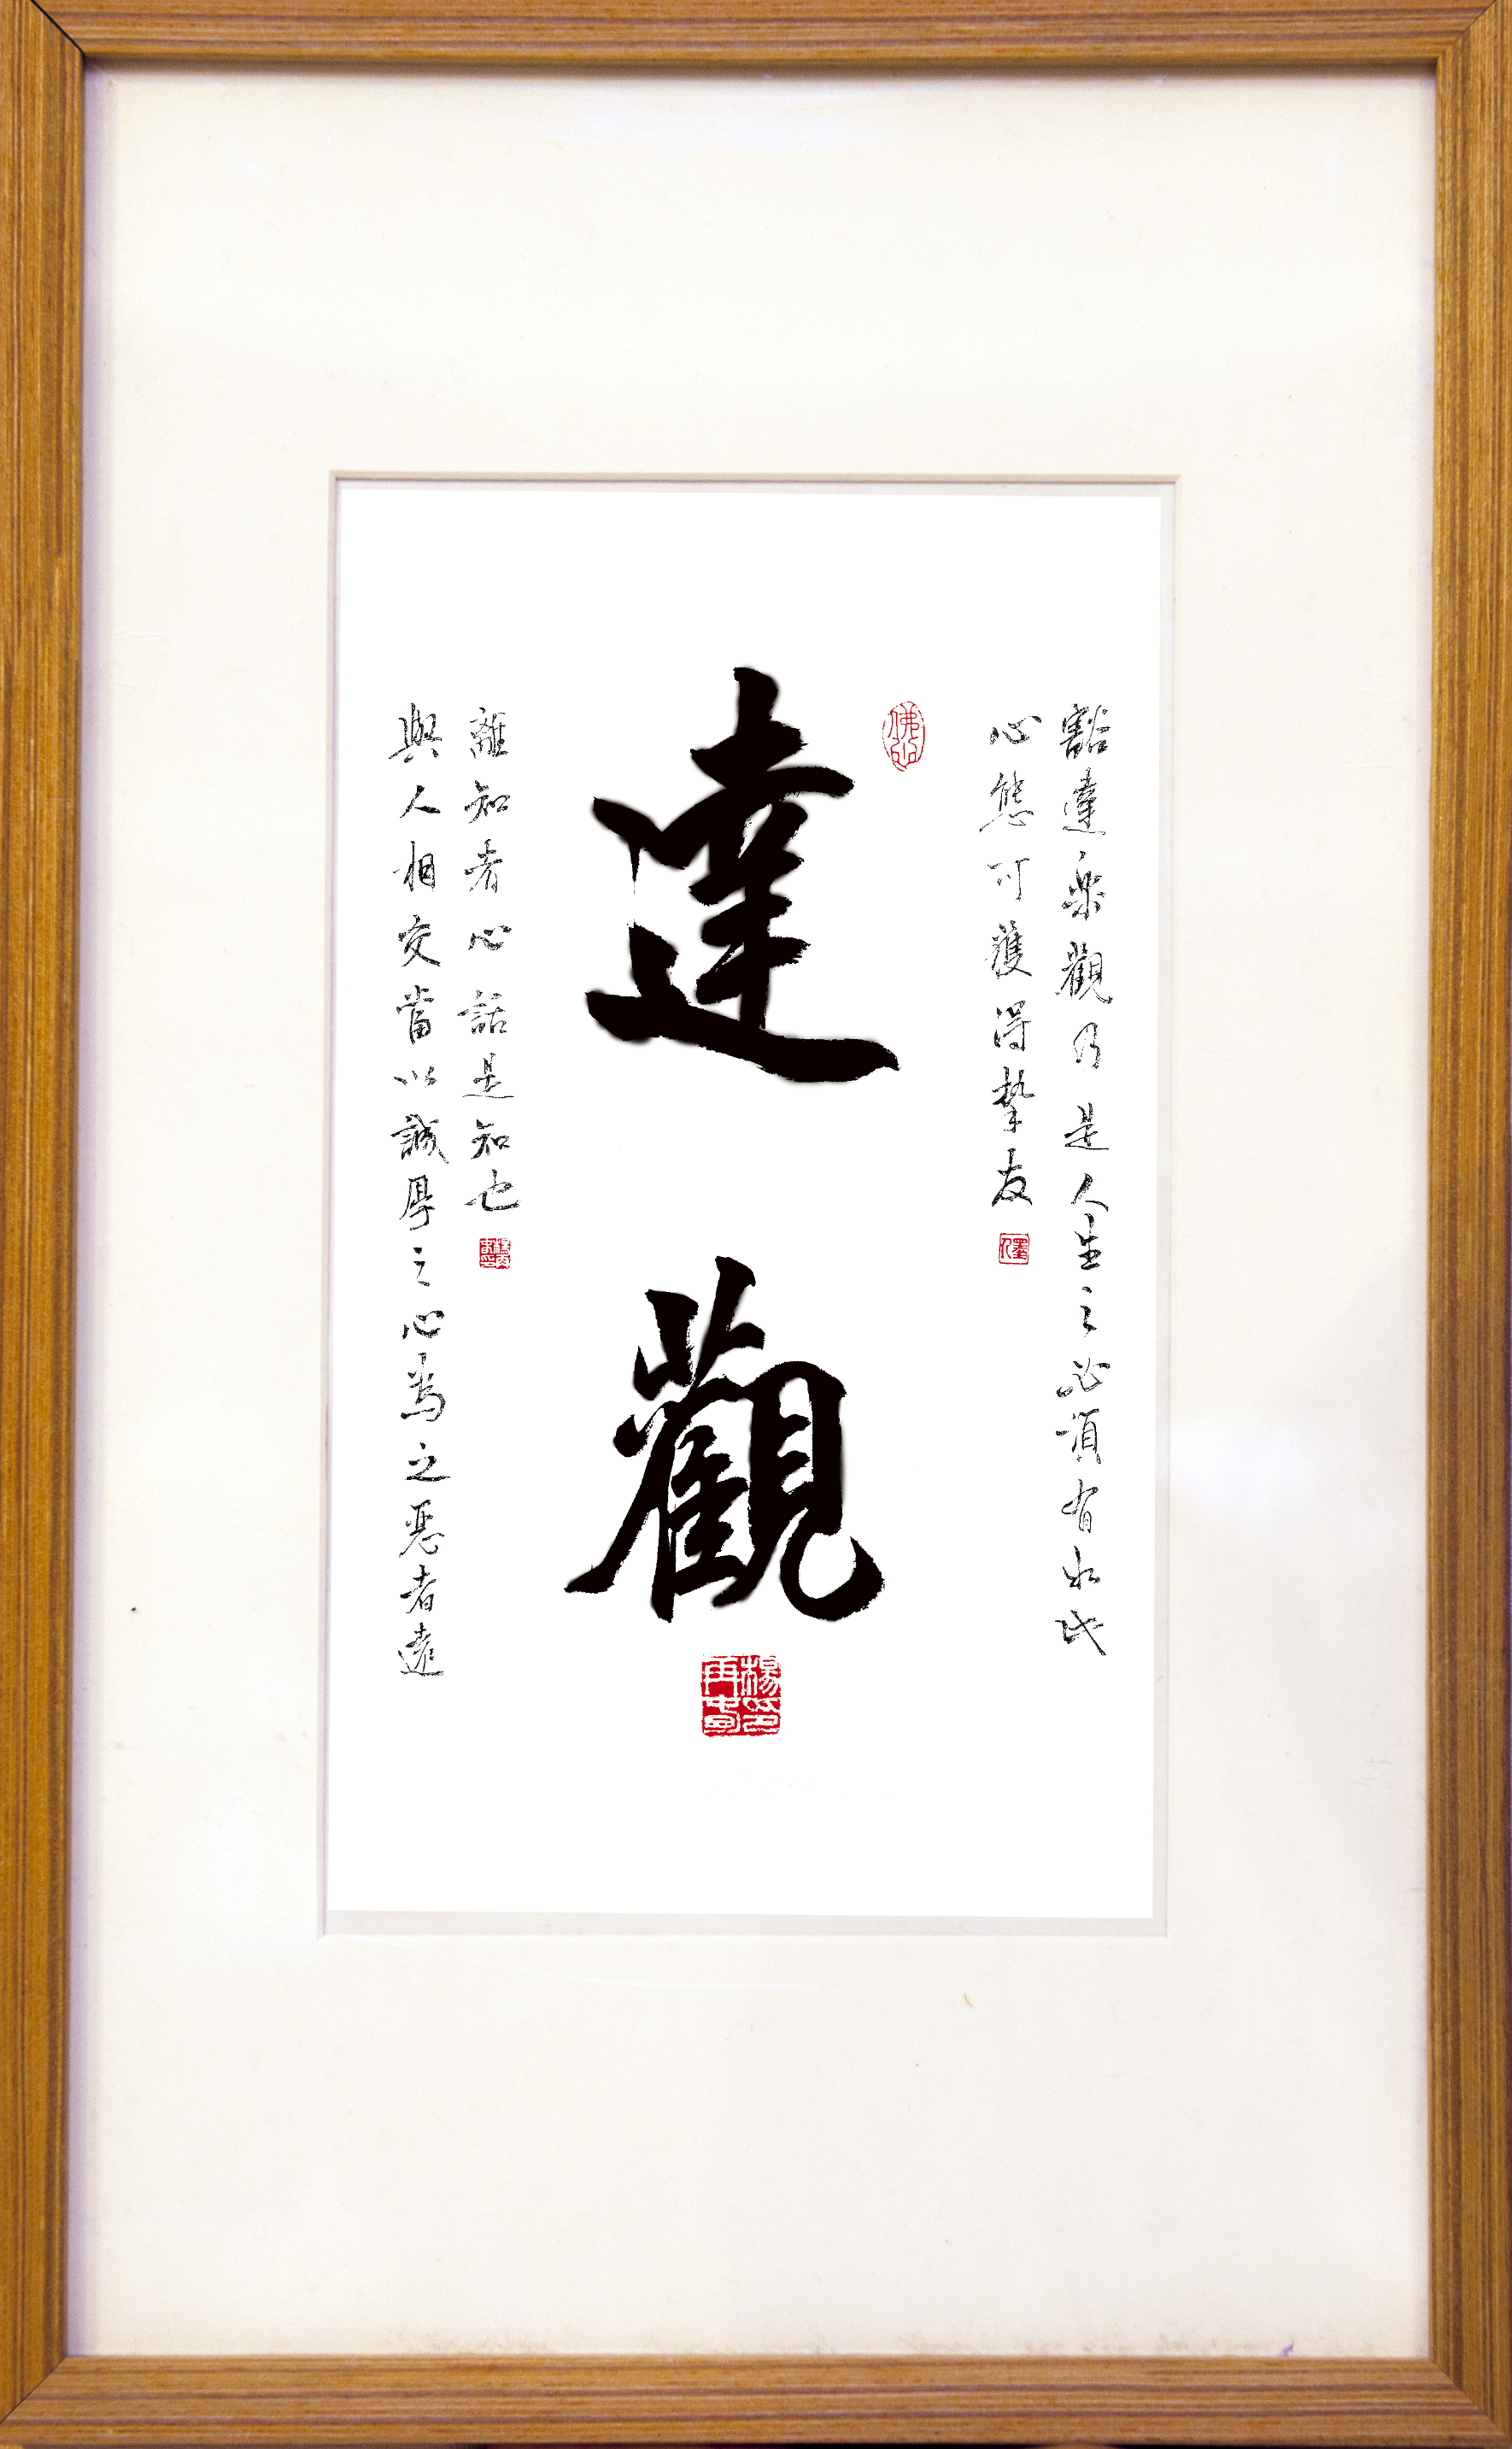 豁達樂觀乃是人生之必須有如此
心態可獲得摯友
佛心
達觀
與人相交當以誠厚之心為之惡者遠
離知者心話是知也